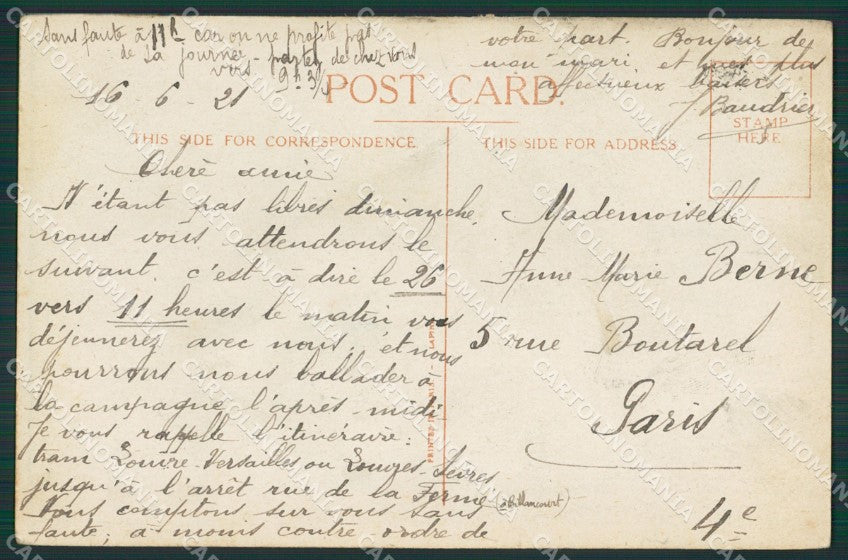 Sans faute à 11h car on ne profite pas
de la journée - partez de chez vous
vers 9h 3/4
votre part. Bonjour de
mon mari et mes plus
affectueux baisers
J Baudrier
16 - 6 - 21
POST CARD.
THIS SIDE FOR CORRESPONDENCE
THIS SIDE FOR ADDRESS
STAMP
HERE
Chère amie
N'étant pas libres dimanche,
nous vous attendrons le
suivant. c'est à dire le 26
vers 11 heures le matin vous
déjeunerez avec nous, et nous
pourrons nous ballader à
la campagne l'après-midi
Je vous rappelle l'itinéraire:
tram Louvre-Versailles ou Louvre-Sèvres
jusqu'à l'arrêt rue de la Ferme (à Billancourt)
Nous comptons sur vous sans
faute, a moins contre ordre de
Mademoiselle
Anne Marie Berne
5 rue Boutarel
Paris
4e
PRINTED
CARTOLINOMANIA